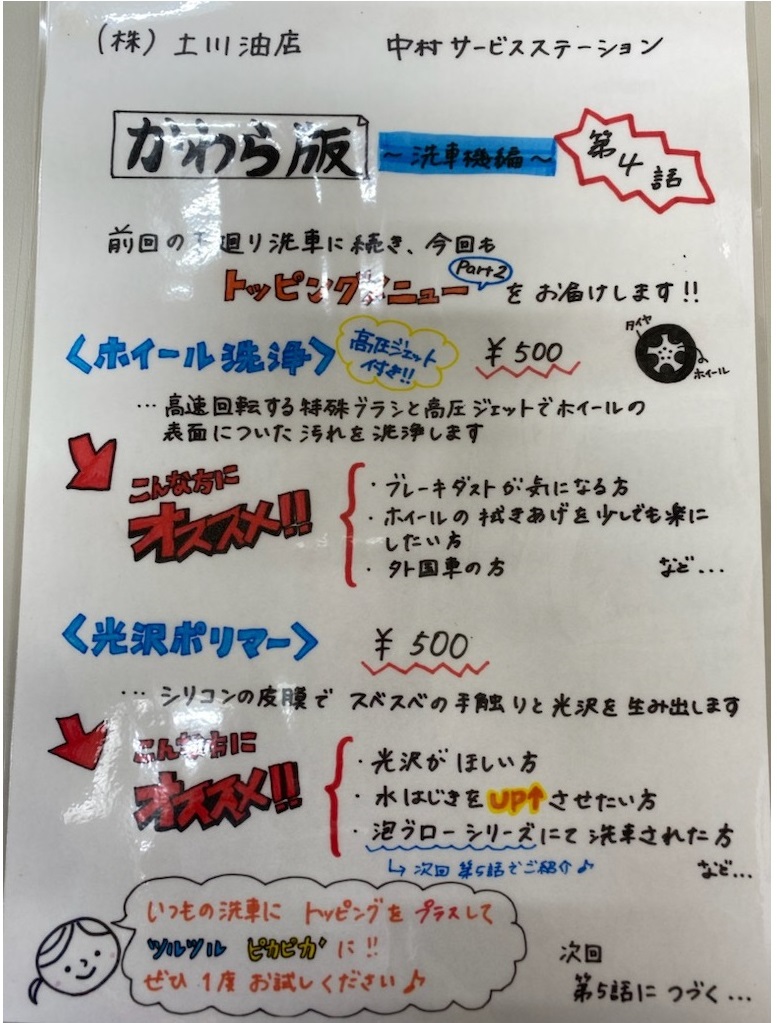 (株) 土川油店 中村サービスステーション
かわら版 ～洗車機編～ 第4話
前回の下廻り洗車に続き、今回も
トッピングメニュー Part2 をお届けします!!
〈ホイール洗浄〉 高圧ジェット付き!! ¥500
タイヤ
ホイール
… 高速回転する特殊ブラシと高圧ジェットでホイールの
表面についた汚れを洗浄します
こんな方に
オススメ!!
・ブレーキダストが気になる方
・ホイールの拭きあげを少しでも楽に
したい方
・外国車の方 など...
〈光沢ポリマー〉 ¥500
… シリコンの皮膜で スベスベの手触りと光沢を生み出します
こんな方に
オススメ!!
・光沢がほしい方
・水はじきをUP↑させたい方
・泡ブローシリーズにて洗車された方
↳ 次回 第5話でご紹介♪ など...
いつもの洗車に トッピングをプラスして
ツルツル ピカピカに!!
ぜひ 1度 お試しください♪
次回
第5話に つづく...